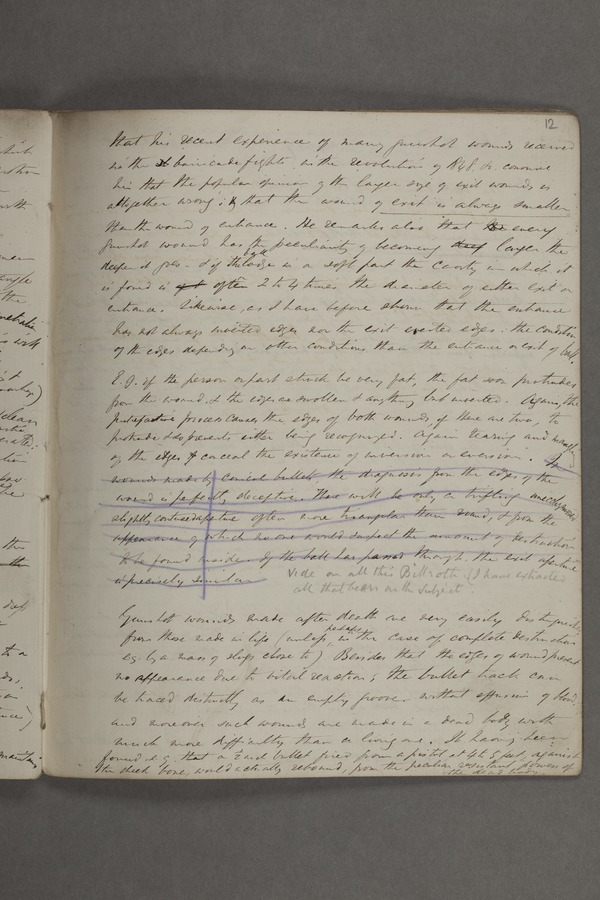 12
that his recent experience of many gunshot wounds received
in the barricade fights in the revolution of 1848 &c. convince
him that the popular opinion of the larger size of exit wounds is
altogether wrong; & that the wound of exit is always smaller
than the wound of entrance. He remarks also that every
gunshot wound has the peculiarity of becoming larger the
deeper it goes. & if the ball lodge in a soft part the cavity in which it
is found is often 2 to 4 times the diameter of either exit or
entrance. Likewise, as I have before shewn that the entrance
does not always inverted edges nor the exit everted edges. the condition
of the edges depending on other conditions than the entrance or exit of ball.
E.g. if the person or part struck be very fat, the fat soon protrudes
from the wound, & the edges are swollen & anything but inverted. Again, the
putrefactive process causes the edges of both wounds, if there are two, to
protrude & so prevents either being recognized. Again tearing and
of the edges conceal the existence of inversion or eversion. In
wounds made by conical bullets, the diagnosis from the edges of the
wound is perfectly deceptive. There will be only a trifling
slightly contused aperture often more triangular than round, & from the
appearance of which no one would suspect the amount of destruction
to be found inside. If the ball has passed through, the exit aperture
is precisely similar
Vide on all this Billroth & I have extracted
all that bears on the subject.
Gunshot wounds made after death are very easily distinguished
from those made in life (unless perhaps in the case of complete destruction
eg. by a mass of slugs close to) Besides that the edges of wound present
no appearance due to vital reaction; the bullet track can
be traced distinctly as an empty groove without effusion of blood.
and moreover such wounds are made in a dead body with
much more difficulty than a living one. It having been
found e.g. that a bullet fired from a pistol at 4 to 5 feet, against
the cheek bone, would actually rebound, from the peculiar resistant powers of
the dead body